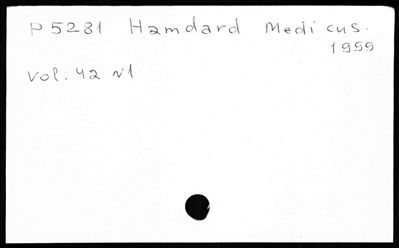 P5281 Hamdard Medicus.
1999
Vol. 42 N1